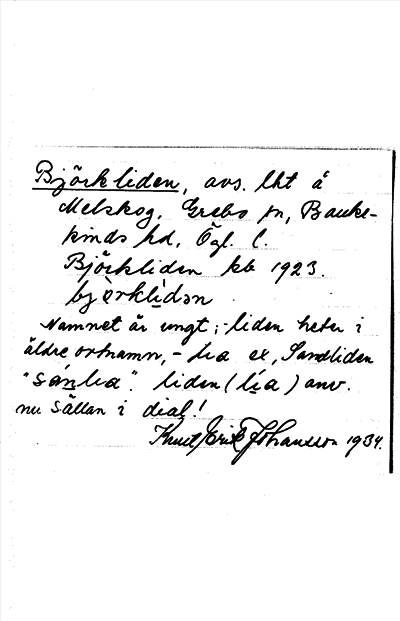 Björkliden, avs. lht å
Melskog, Grebo sn, Banke-
kinds hd, Ögl. l.
Björkliden kb 1923.
bjö̀rklìdən
Namnet är ungt; -liden heter i
äldre ortnamn, - lia ex, Sandliden
"sánlia". liden (lía) anv.
nu sällan i dial!
Knut Erik Johansson 1934.